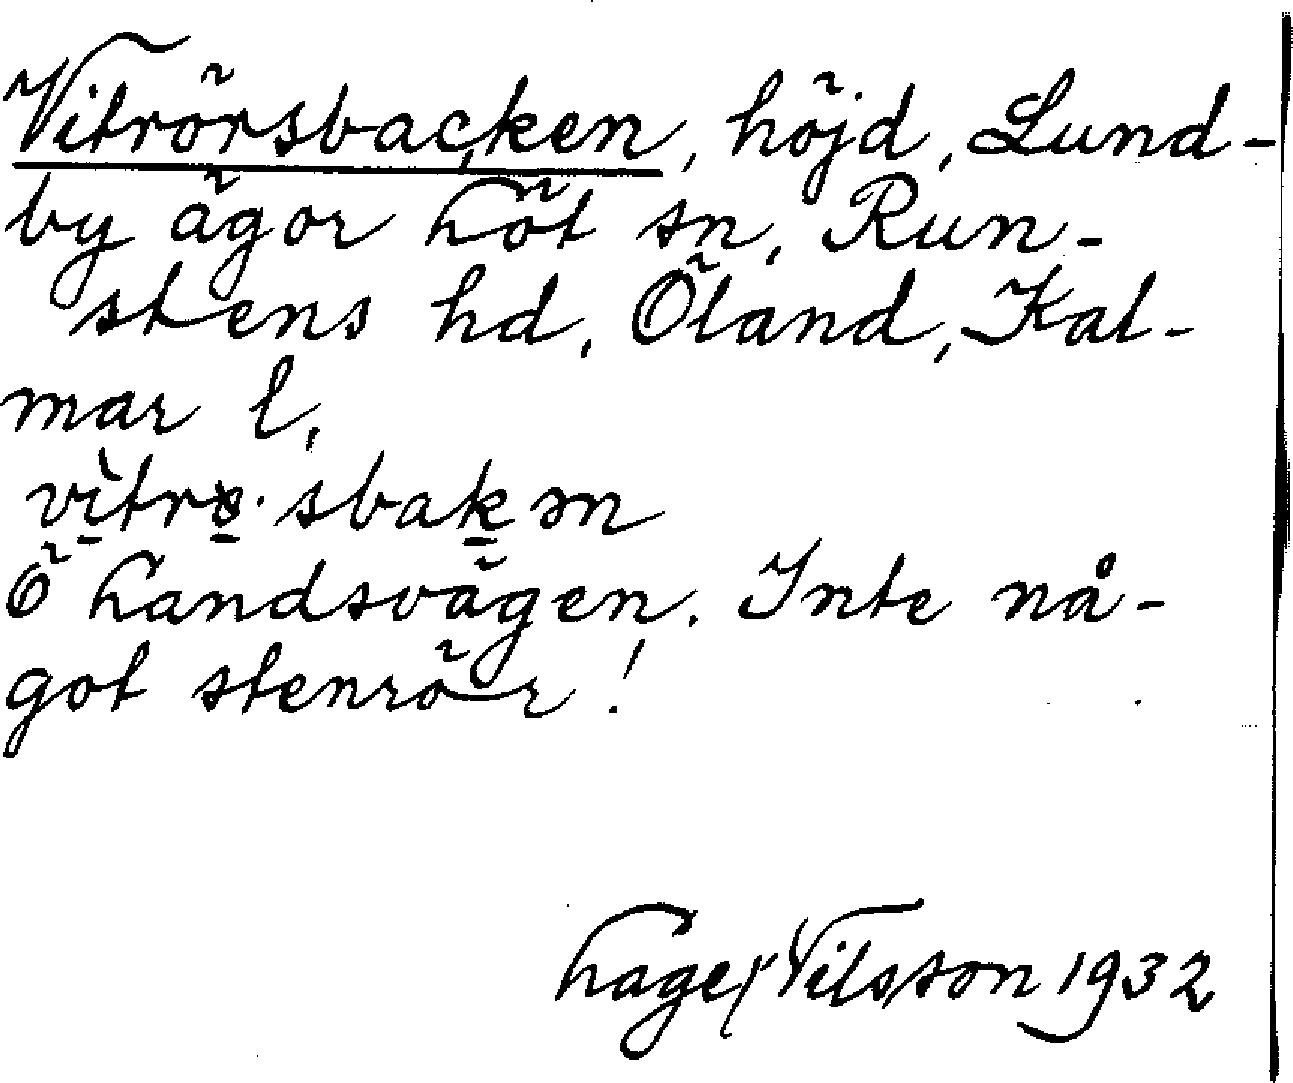 Vitrörsbacken, höjd, Lund-
by ägor Löt sn, Run-
stens hd, Öland, Kal-
mar l.
sbakən
Ö Landsvägen. Inte nå-
got stenrör!
Lage Nilsson 1932